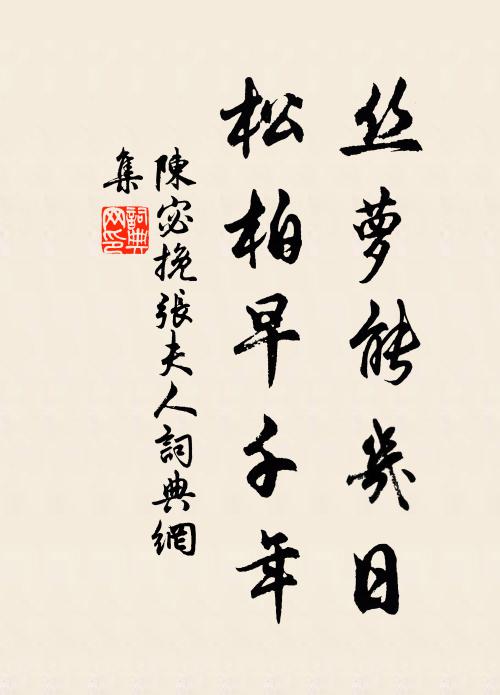 丝萝能几日
松柏早千年
陳宓挽張夫人詞典網
集
詞典網印